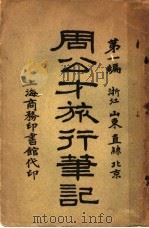 第一編 浙江 山東 直隸 北京
周公才旅行筆記
上海商務印書館代印